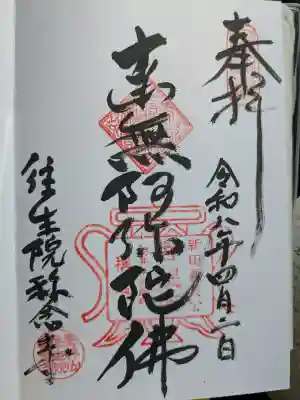 奉拝
令和八年四月二日
南無阿弥陀佛
往生院称念寺